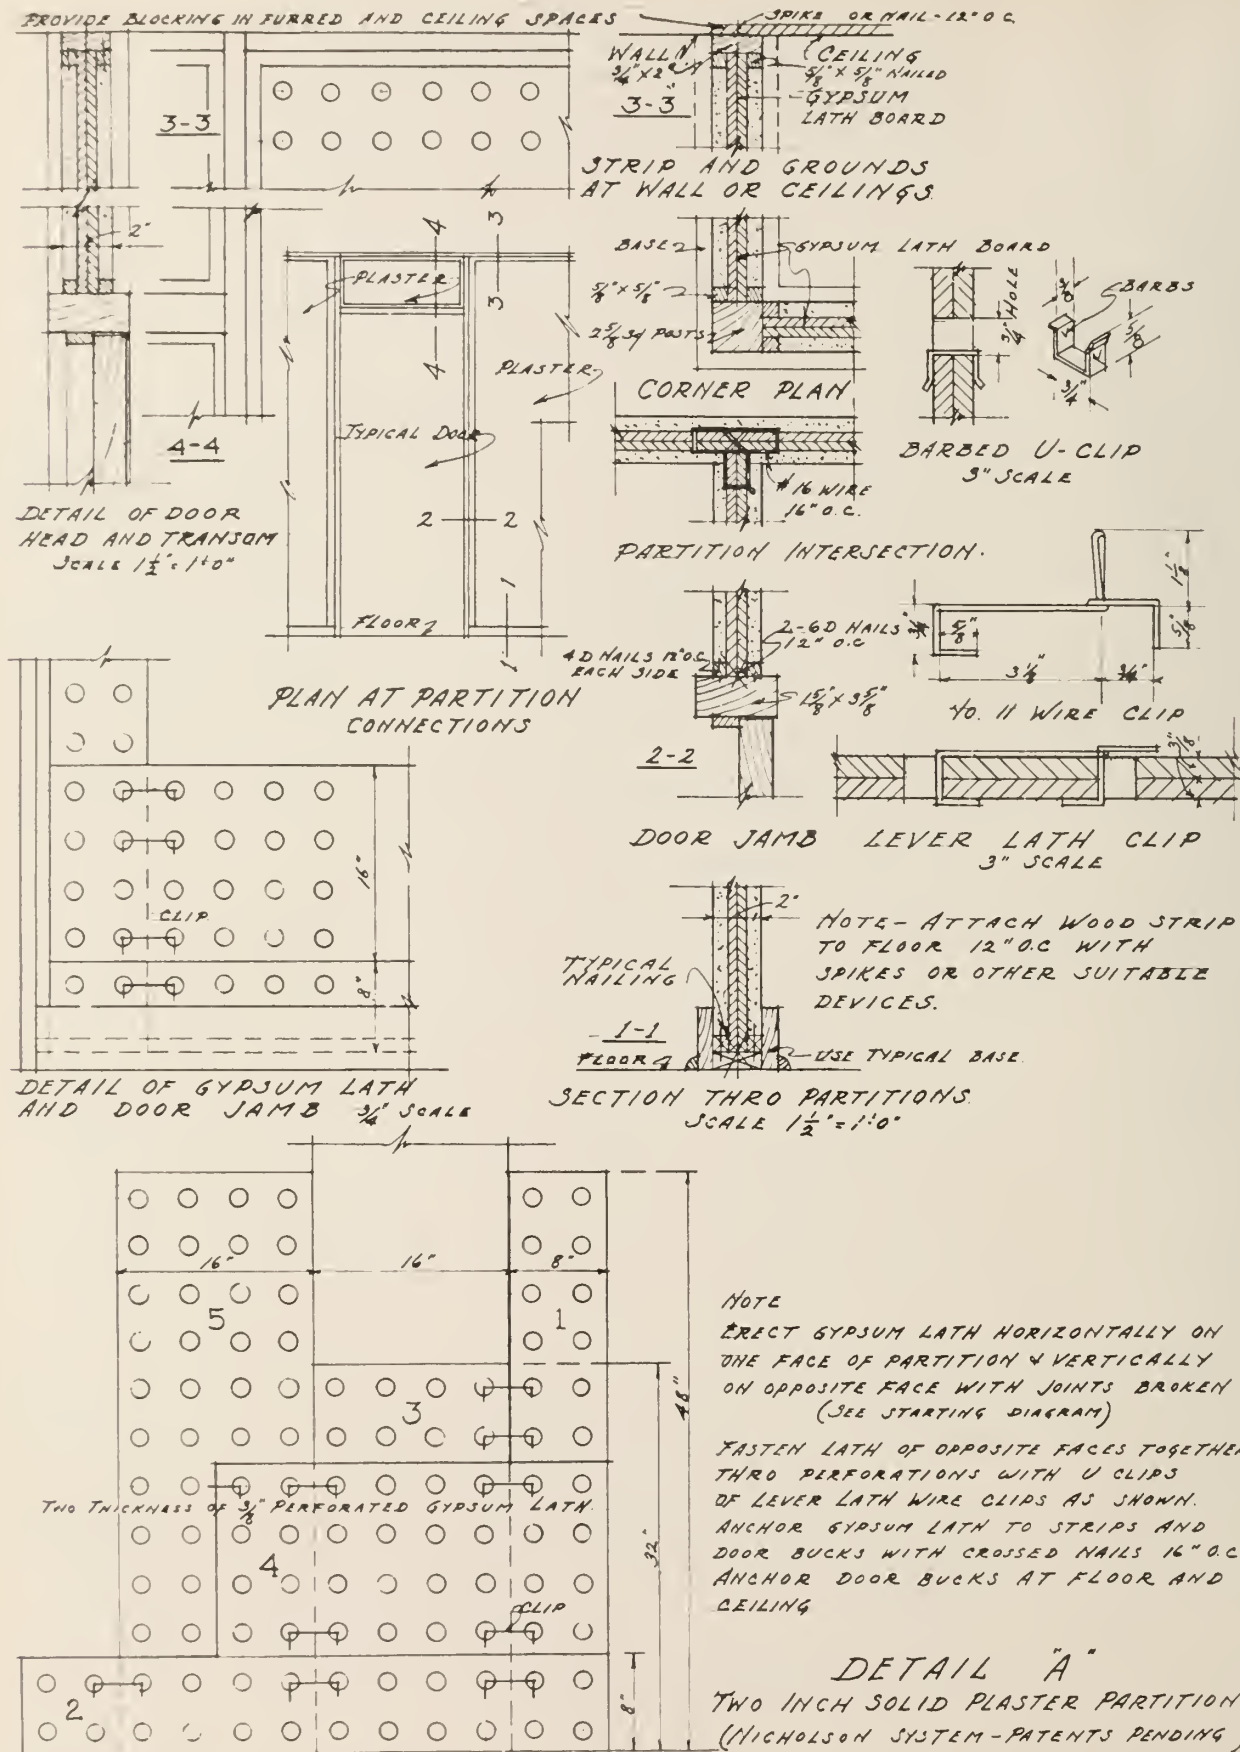 PROVIDE BLOCKING IN FURRED AND CEILING SPACES
SPIKE OR NAIL-12" O.C.
WALL
3/4" X 2"
CEILING
5/8" X 5/8" NAILED
GYPSUM
LATH BOARD
3-3
STRIP AND GROUNDS
AT WALL OR CEILINGS
3-3
2"
4-4
DETAIL OF DOOR
HEAD AND TRANSOM
SCALE 1 1/2" = 1'-0"
4
3
PLASTER
3
4
PLASTER
TYPICAL DOOR
2
2
FLOOR
1
1
PLAN AT PARTITION
CONNECTIONS
BASE
GYPSUM LATH BOARD
5/8" X 5/8"
2 5/8 SQ POSTS
CORNER PLAN
3/4" HOLE
3/8
BARBS
5/8
3/4"
BARBED U-CLIP
3" SCALE
#16 WIRE
16" O.C.
PARTITION INTERSECTION.
2-6D NAILS
12" O.C
4D NAILS 12" O.C.
EACH SIDE
1 5/8 X 3 5/8"
2-2
DOOR JAMB
1 1/8"
5/8"
5/8"
3 1/8"
3/4"
NO. 11 WIRE CLIP
3/8"
LEVER LATH CLIP
3" SCALE
16"
CLIP
8"
DETAIL OF GYPSUM LATH
AND DOOR JAMB 3/4" SCALE
2"
TYPICAL
NAILING
1-1
FLOOR
USE TYPICAL BASE
NOTE- ATTACH WOOD STRIP
TO FLOOR 12" O.C WITH
SPIKES OR OTHER SUITABLE
DEVICES.
SECTION THRO PARTITIONS.
SCALE 1 1/2" = 1'-0"
16"
16"
8"
5
1
3
48"
TWO THICKNESS OF 3/8" PERFORATED GYPSUM LATH.
4
32"
CLIP
2
8"
NOTE
ERECT GYPSUM LATH HORIZONTALLY ON
ONE FACE OF PARTITION & VERTICALLY
ON OPPOSITE FACE WITH JOINTS BROKEN
(SEE STARTING DIAGRAM)
FASTEN LATH OF OPPOSITE FACES TOGETHER
THRO PERFORATIONS WITH U CLIPS
OF LEVER LATH WIRE CLIPS AS SHOWN.
ANCHOR GYPSUM LATH TO STRIPS AND
DOOR BUCKS WITH CROSSED NAILS 16" O.C
ANCHOR DOOR BUCKS AT FLOOR AND
CEILING
DETAIL "A"
TWO INCH SOLID PLASTER PARTITION
(NICHOLSON SYSTEM-PATENTS PENDING)